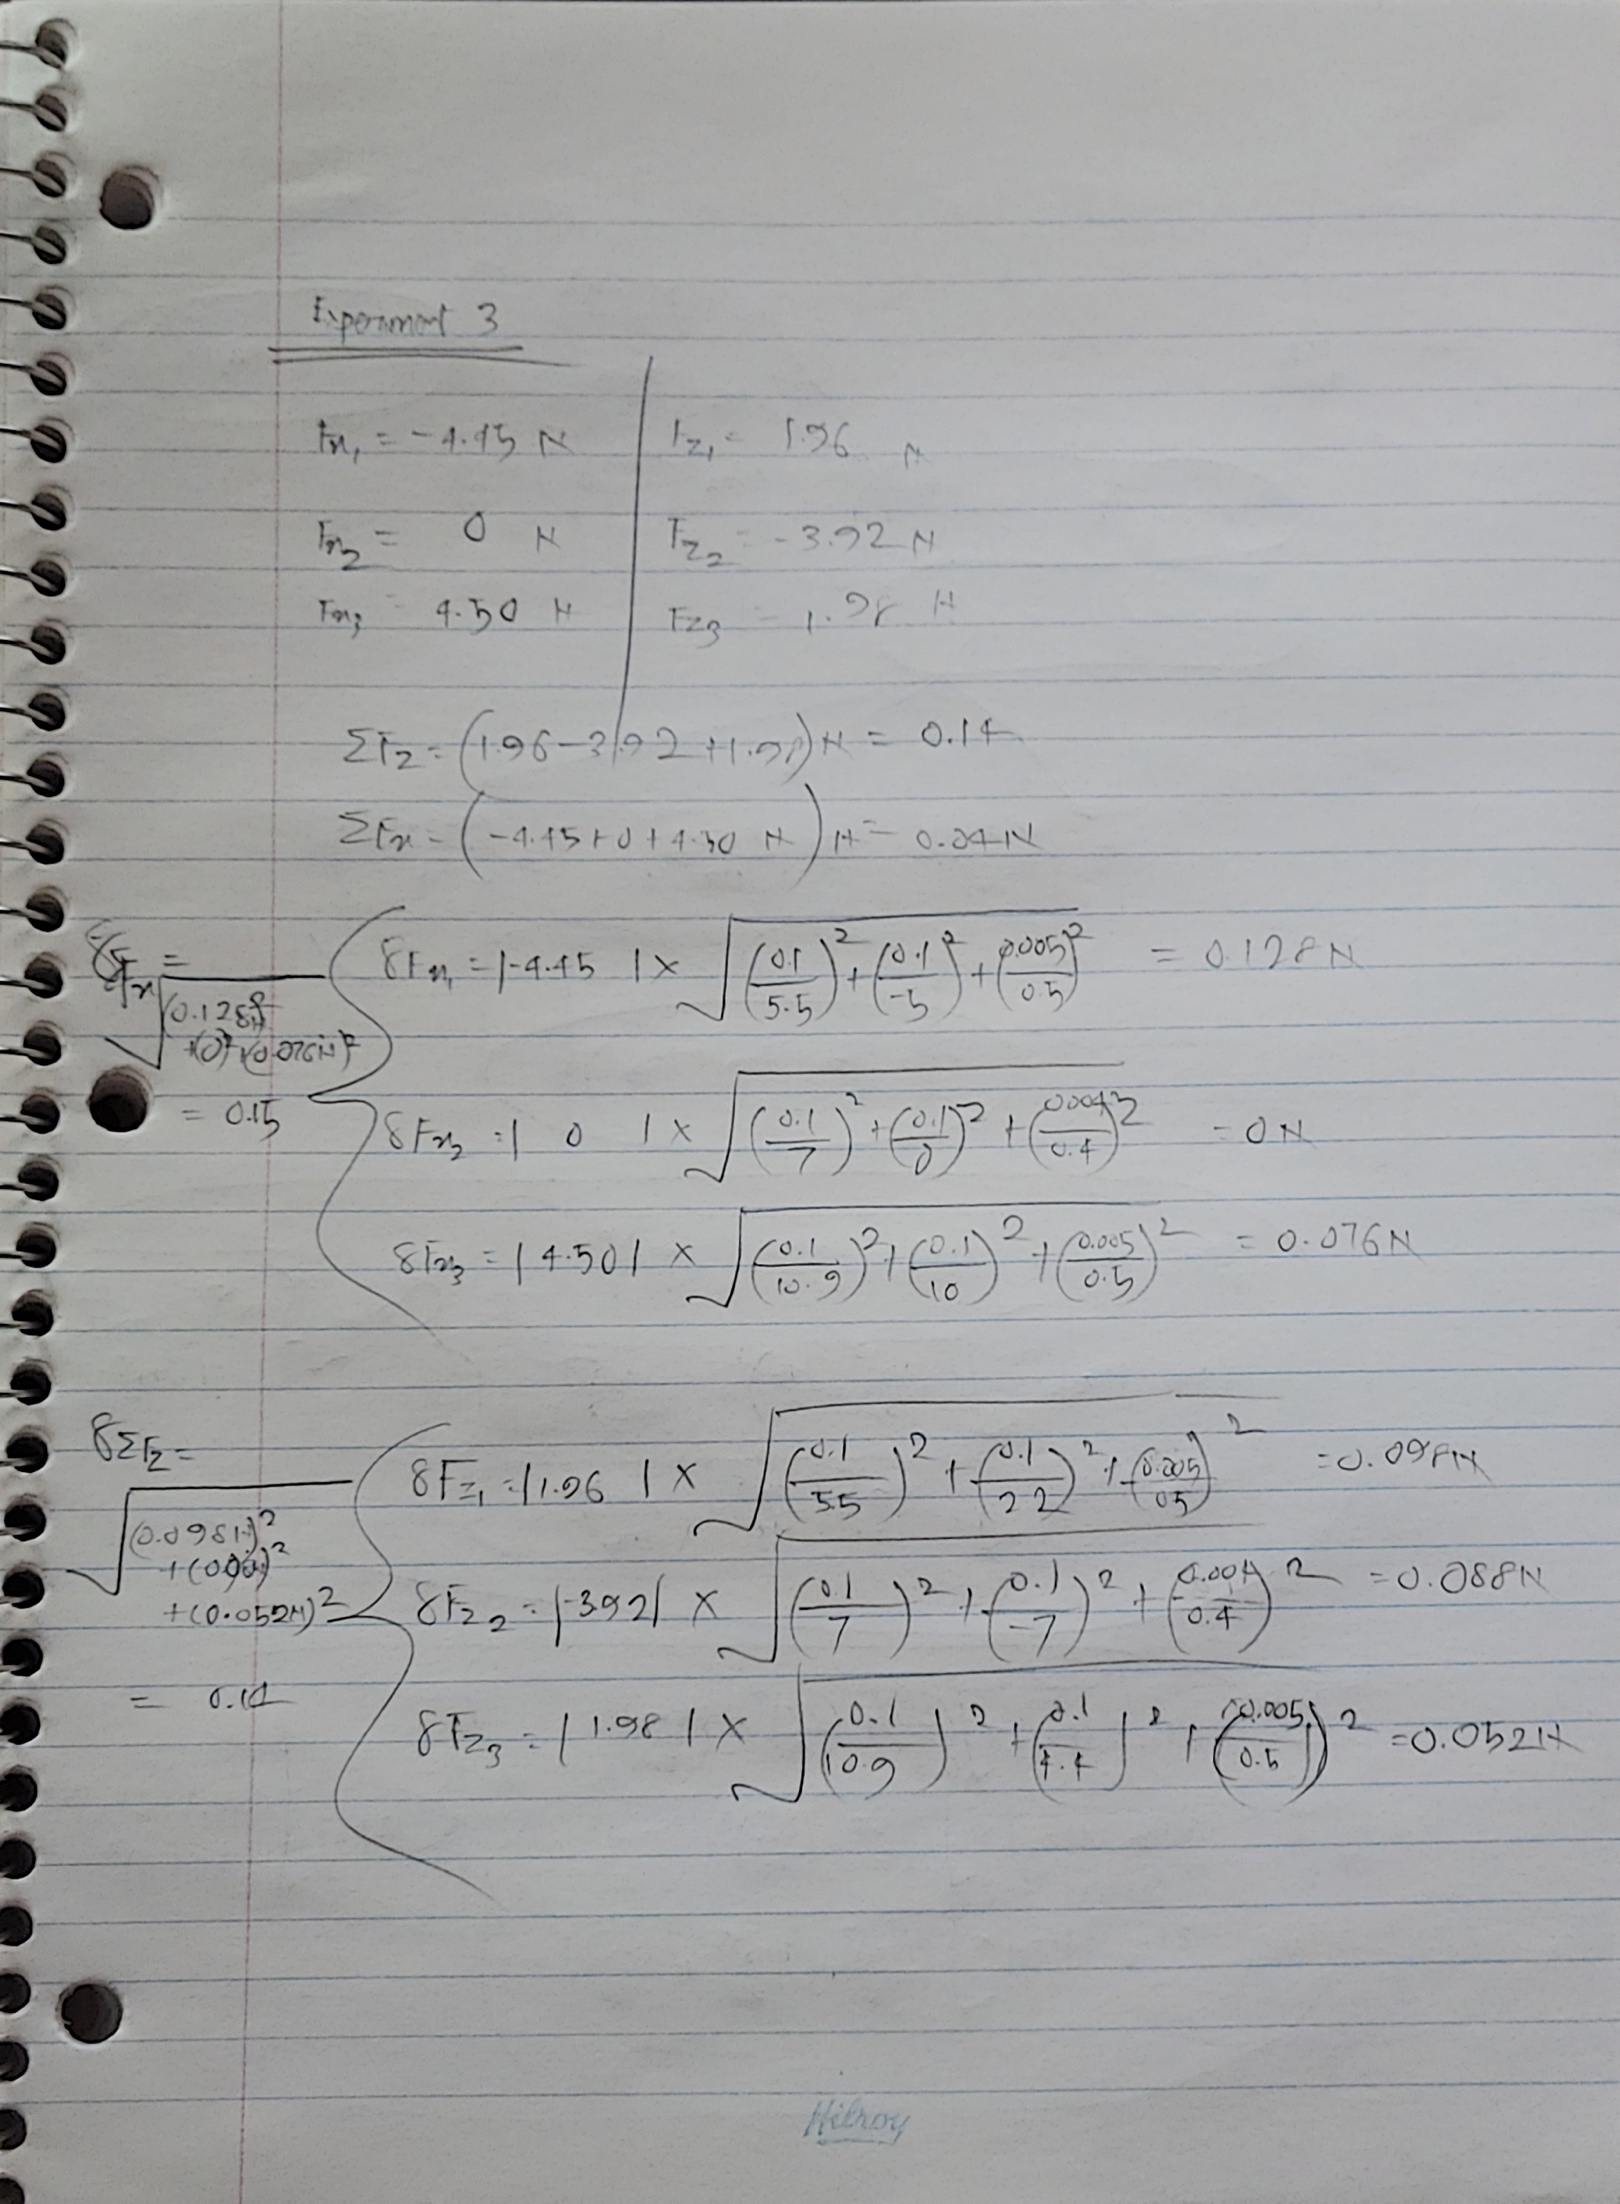 Experiment 3
Fx₁ = -4.45 N | Fz₁ = 1.96 N
Fx₂ = 0 N | Fz₂ = -3.92 N
Fx₃ = 4.50 N | Fz₃ = 1.98 N
ΣFz = (1.96-3.92+1.98) N = 0.14
ΣFx = (-4.45+0+4.50 N) N = 0.04 N
δFx = √((0.128N)² + (0)² + (0.076N)²) = 0.15
δFx₁ = |-4.45| × √((0.1/5.5)² + (0.1/-5)² + (0.005/0.5)²) = 0.128N
δFx₂ = | 0 | × √((0.1/7)² + (0.1/0)² + (0.004/0.4)²) = 0 N
δFx₃ = | 4.50 | × √((0.1/10.9)² + (0.1/10)² + (0.005/0.5)²) = 0.076N
δΣFz = √((0.098N)² + + (0.052N)²) =
δFz₁ = |1.96| × √((0.1/5.5)² + (0.1/2.2)² + (0.005/0.5)²) = 0.098N
δFz₂ = |-3.92| × √((0.1/7)² + (0.1/-7)² + (0.004/0.4)²) = 0.088N
δFz₃ = | 1.98 | × √((0.1/10.9)² + (0.1/4.4)² + (0.005/0.5)²) = 0.052N
Hilroy